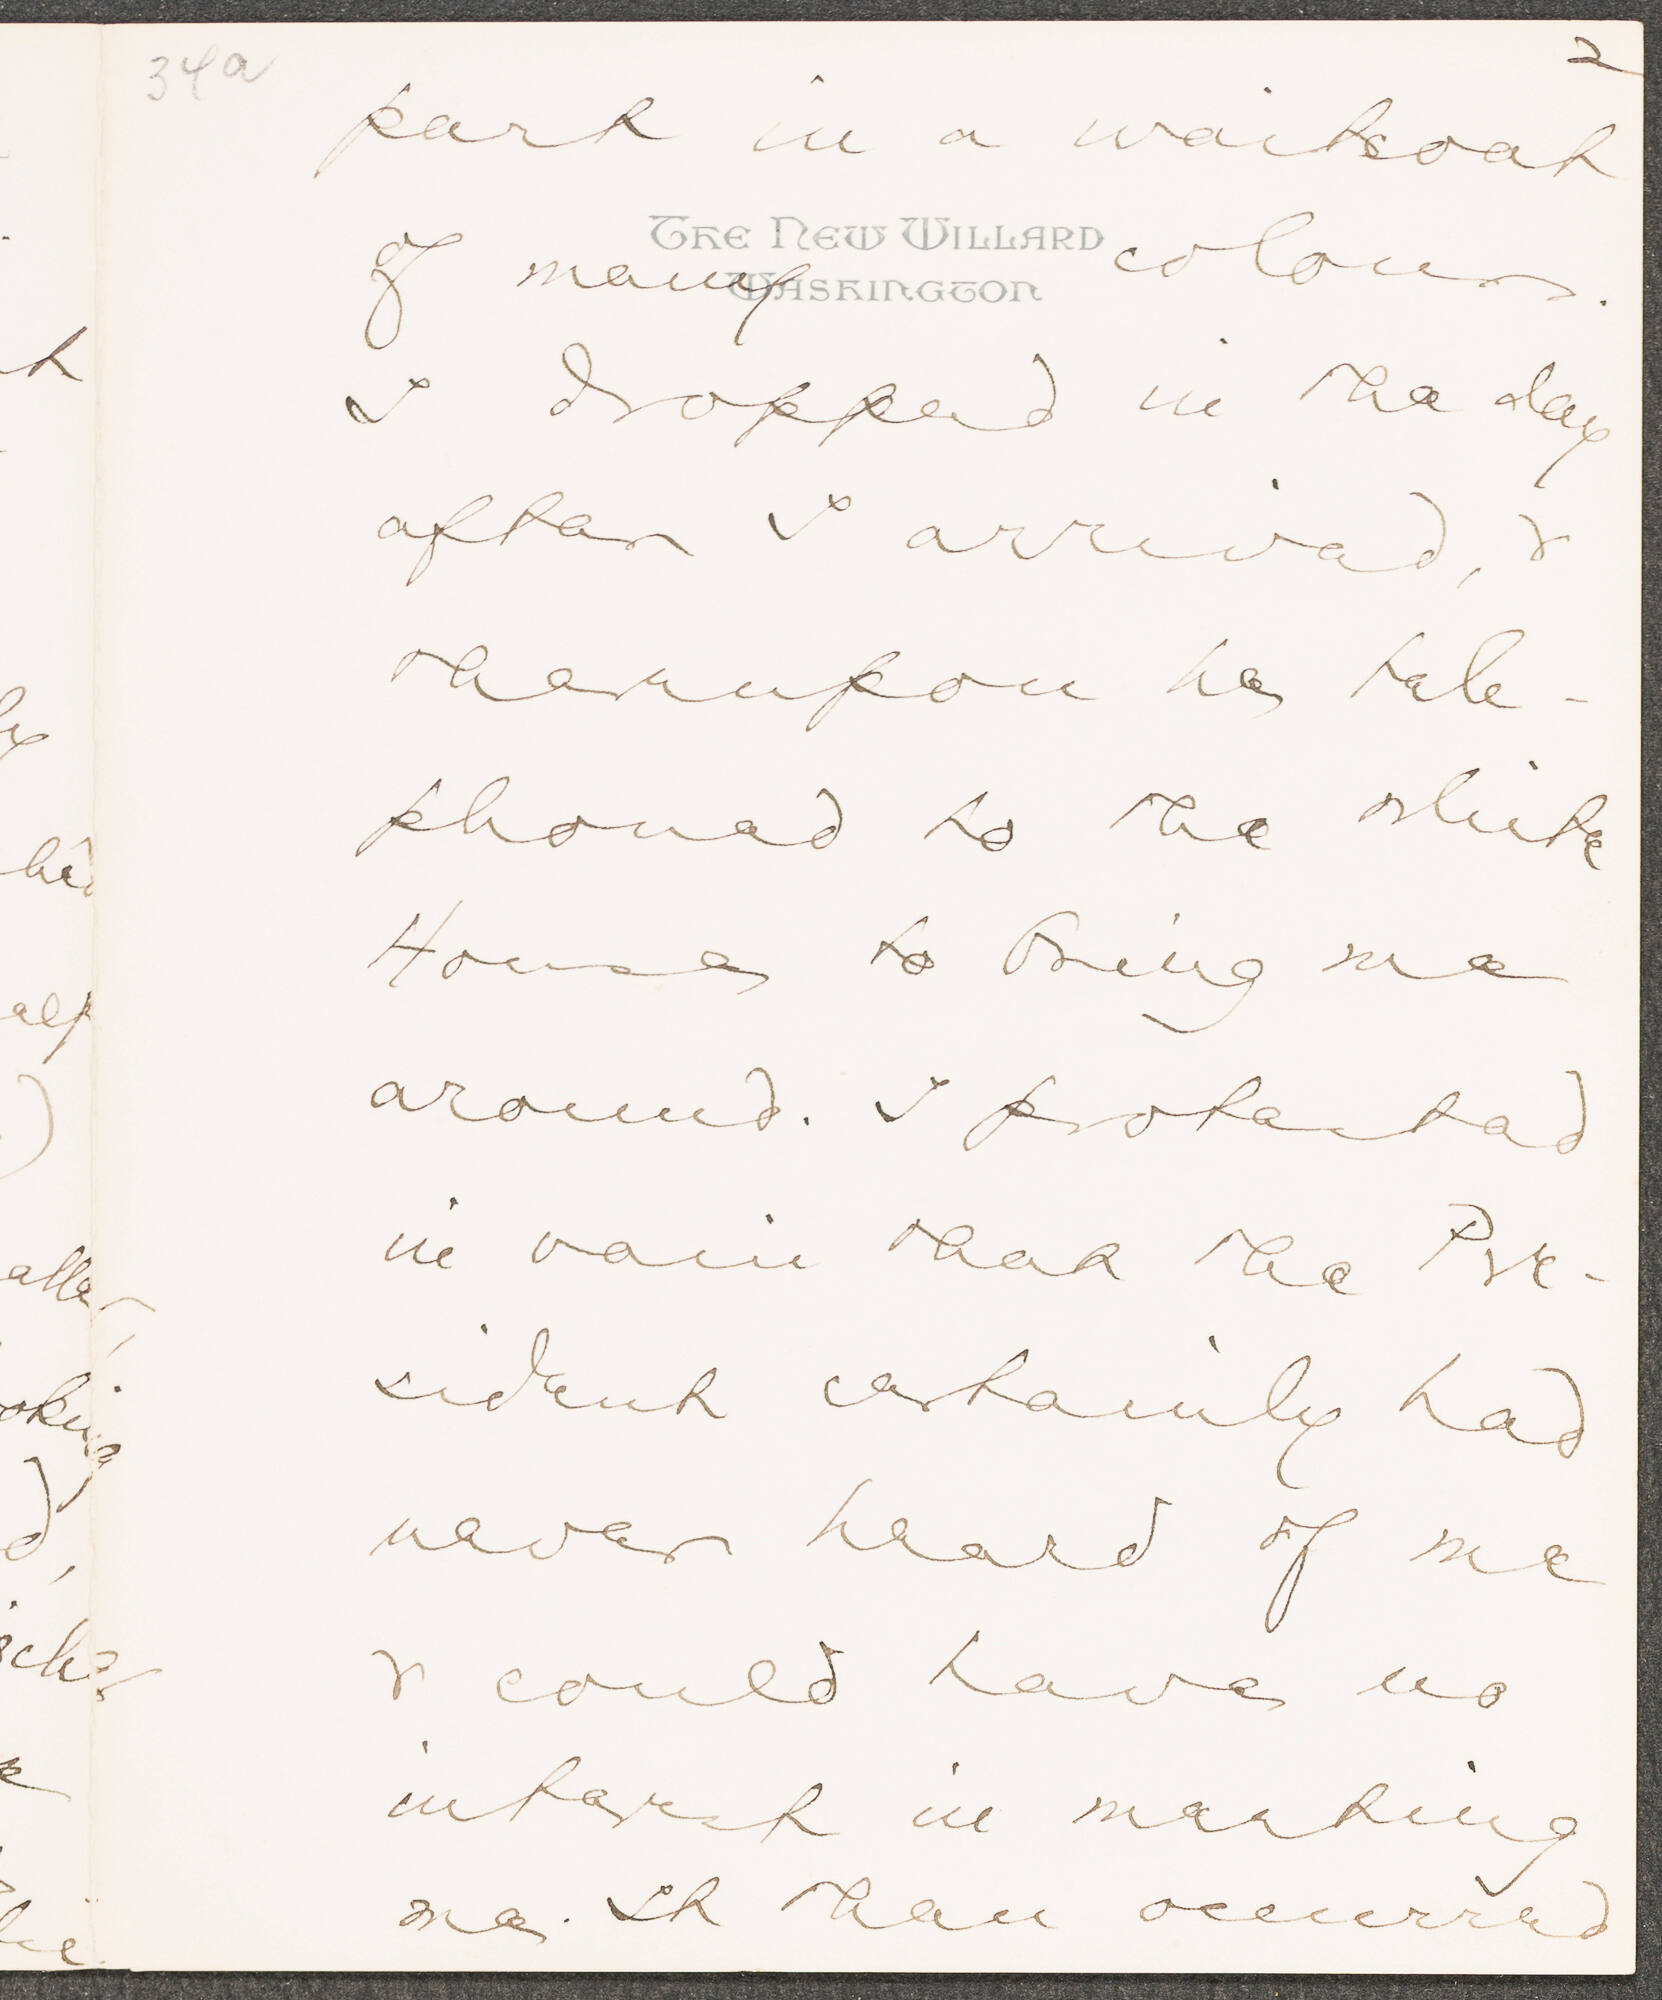 34a
2
part in a waistcoat
THE NEW WILLARD
WASHINGTON
of many colours.
I dropped in the day
after I arrived, &
thereupon he tele-
phoned to the White
House to bring me
around. I protested
in vain that the Pre-
sident certainly had
never heard of me
& could have no
interest in meeting
me. It then occurred